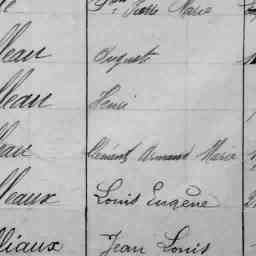 Pierre Marie
lleau Auguste
lleau Henri
leau Clément Armand Marie
lleaux Louis Eugène
lliaux Jean Louis